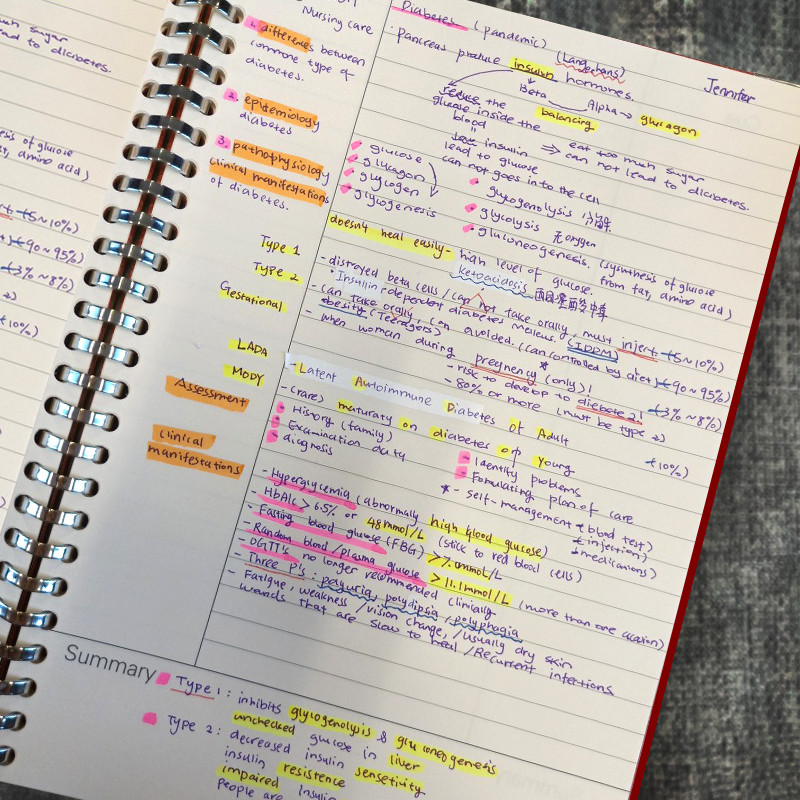 Nursing care
1. differences between
common type of
diabetes.
2. epidemiology
diabetes
3. pathophysiology
clinical manifestations
of diabetes.
Type 1
Type 2
Gestational
LADA
MODY
Assessment
clinical
manifestations
Diabetes (pandemic)
Jennifer
· Pancreas produce insulin hormones. (Langerhans)
Beta
Alpha → glucagon
balancing
reduce the
glucose inside the
blood
insulin
lead to glucose
can not goes into the cell
⇒ eat too much sugar
can not lead to diabetes.
glucose
glucagon
glycogen
glycogenesis
glycogenolysis 分解
glycolysis 无 oxygen
gluconeogenesis. (synthesis of glucose
from fat, amino acid)
doesn't heal easily - high level of glucose.
ketoacidosis 酮酸中毒
- distroyed beta cells / can not take orally, must inject (5~10%)
· Insulin dependent diabetes meleus. (IDDM)
- can take orally, can avoided. (can controlled by diet) (90~95%)
obesity (Teenagers)
- when woman during pregnency (only)! (3%~8%)
- risk to develop to diebete 2!
- 80% or more (must be type 2)
- Latent Autoimmune Diabetes of Adult (10%)
- (rare) maturaty on diabetes of Young
History (family)
Examination data
diagnosis
Identify problems
Fomulating plan of care
* - self-management (blood test)
injection)
medications)
- Hyperglycemia (abnormally high blood glucose)
- HbA1c > 6.5% or 48mmol/L (stick to red blood cells)
- Fasting blood glucose (FBG) > 7.0mmol/L
- Random blood/plasma glucose > 11.1mmol/L (more than one occasion)
- OGTTs no longer recommended clinically
- Three P's: polyuria, polydipsia, polyphagia
- Fatigue, weakness / vision change, / usually dry skin
wands that are slow to heal / Recurrent infections
Summary
Type 1 : inhibits glycogenolysis & gluconeogenesis
unchecked glucose in liver
Type 2 : decreased insulin sensetivity
insulin resistence
impaired insulin
people are
much sugar
lead to diabetes.
of glucose
, amino acid)
(5~10%)
(90~95%)
(3%~8%)
2)
(10%)